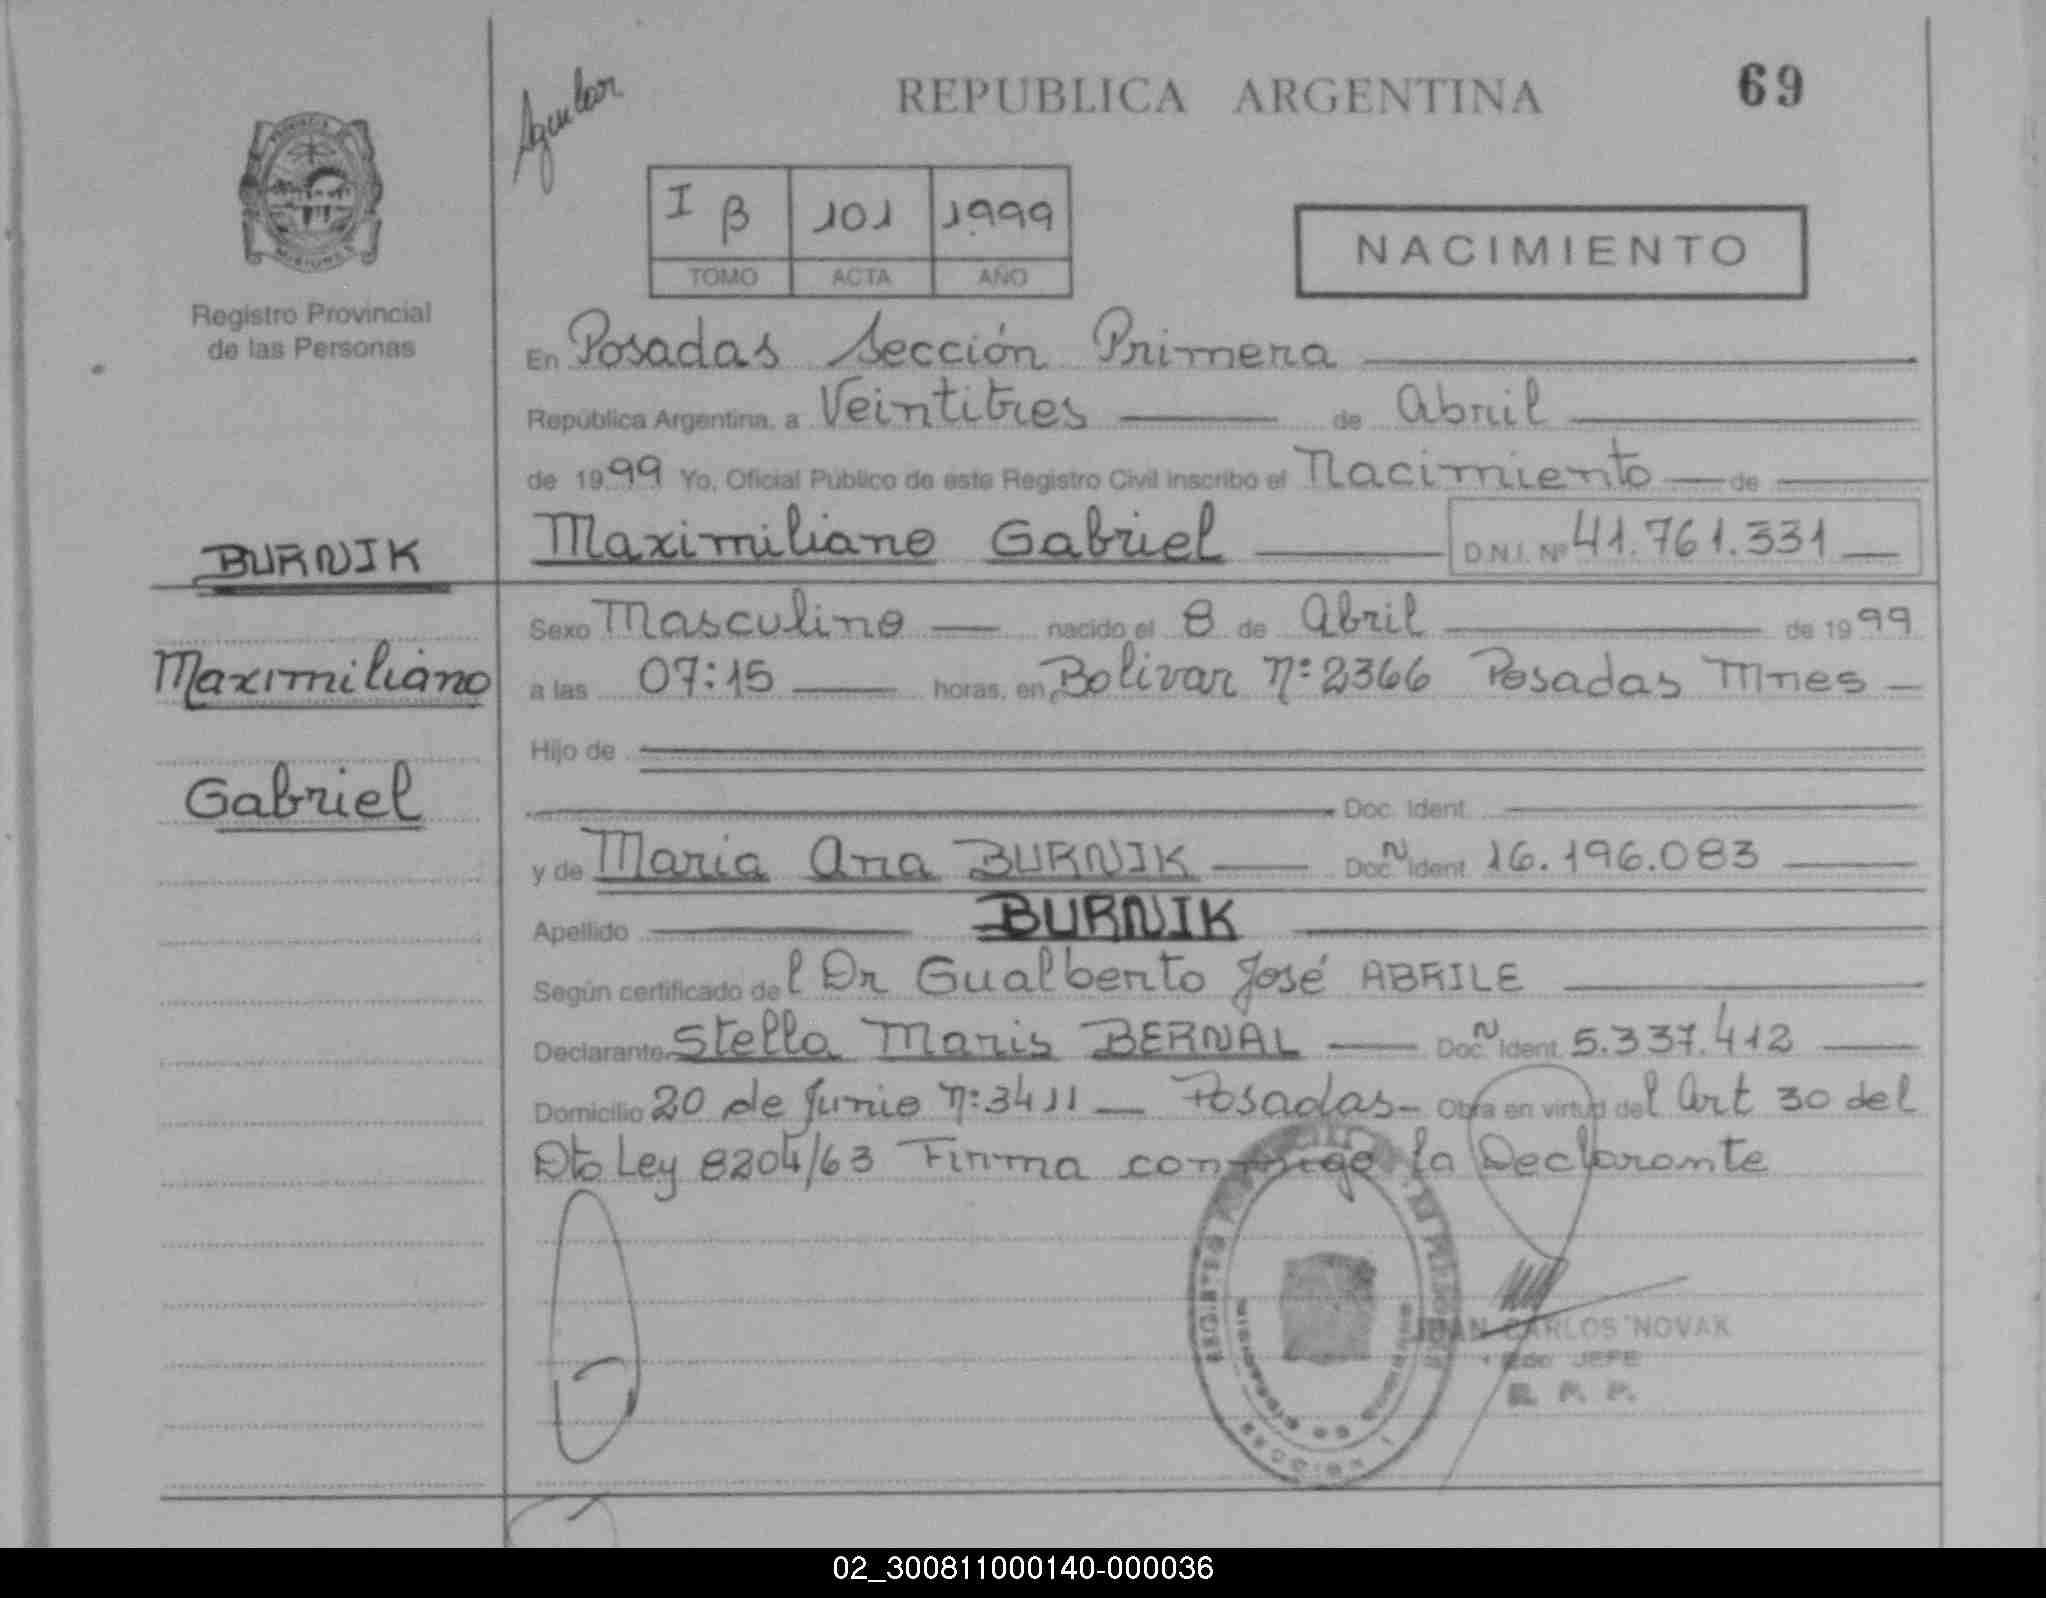 REPUBLICA ARGENTINA
69
I B 101 1999
TOMO ACTA AÑO
NACIMIENTO
Registro Provincial
de las Personas
En Posadas Sección Primera
República Argentina, a Veintitres de Abril
de 1999 Yo, Oficial Público de este Registro Civil inscribo el Nacimiento de
BURNIK
Maximiliano Gabriel D.N.I. Nº 41.761.331
Sexo Masculino nacido el 8 de Abril de 1999
Maximiliano
a las 07:15 horas, en Bolivar Nº 2366 Posadas Mnes
Hijo de
Gabriel
Doc. Ident.
y de Maria Ana BURNIK Doc. N Ident. 16.196.083
Apellido BURNIK
Según certificado del Dr Gualberto José ABRILE
Declarante Stella Maris BERNAL Doc. N Ident. 5.337.412
Domicilio 20 de Junio Nº 3411 Posadas Obra en virtud del Art 30 del
Dto Ley 8204/63 Firma conmigo la Declarante
JUAN CARLOS NOVAK
JEFE
R. P. P.
02_300811000140-000036